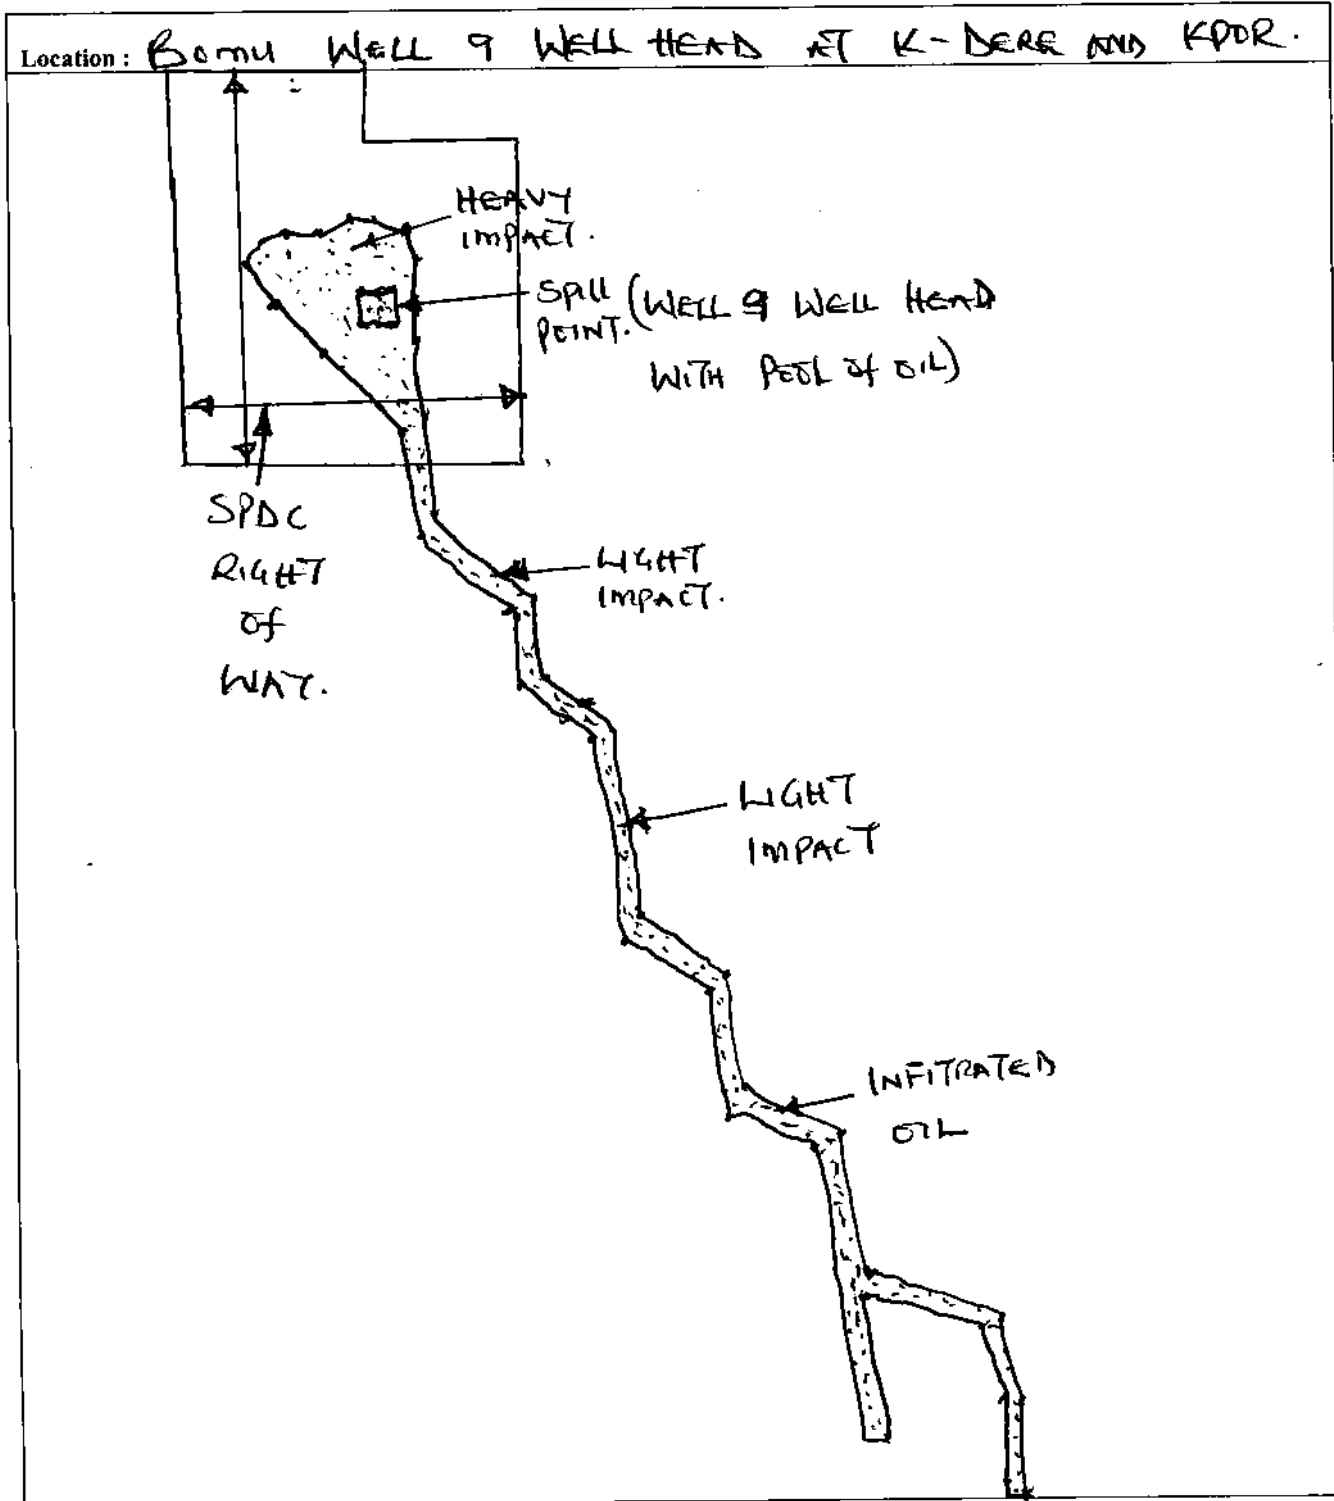 Location : BOMU WELL 9 WELL HEAD AT K-DERE AND KPOR.
HEAVY
IMPACT.
SPILL
POINT.
(WELL 9 WELL HEAD
WITH POOL OF OIL)
SPDC
RIGHT
OF
WAY.
LIGHT
IMPACT.
LIGHT
IMPACT
INFITRATED
OIL